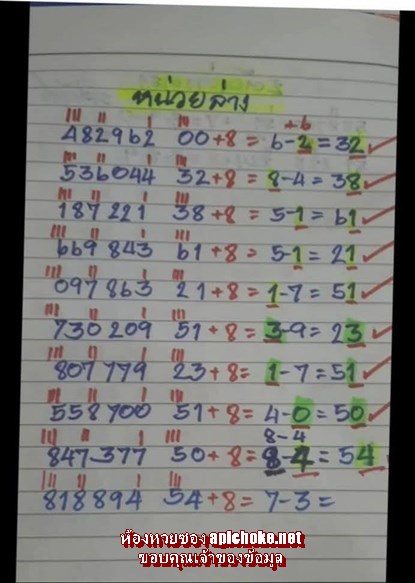 หน่วยล่าง
+6
482962 00+8= 6-2=32
536044 32+8= 8-4=38
187221 38+8= 5-1=61
669843 61+8= 5-1=21
097863 21+8= 1-7=51
730209 51+8= 3-9=23
807779 23+8= 1-7=51
558700 51+8= 4-0=50
8-4
847377 50+8= 8-4=54
818894 54+8= 7-3=
ห้องหวยซอง apichoke.net
ขอบคุณเจ้าของข้อมูล